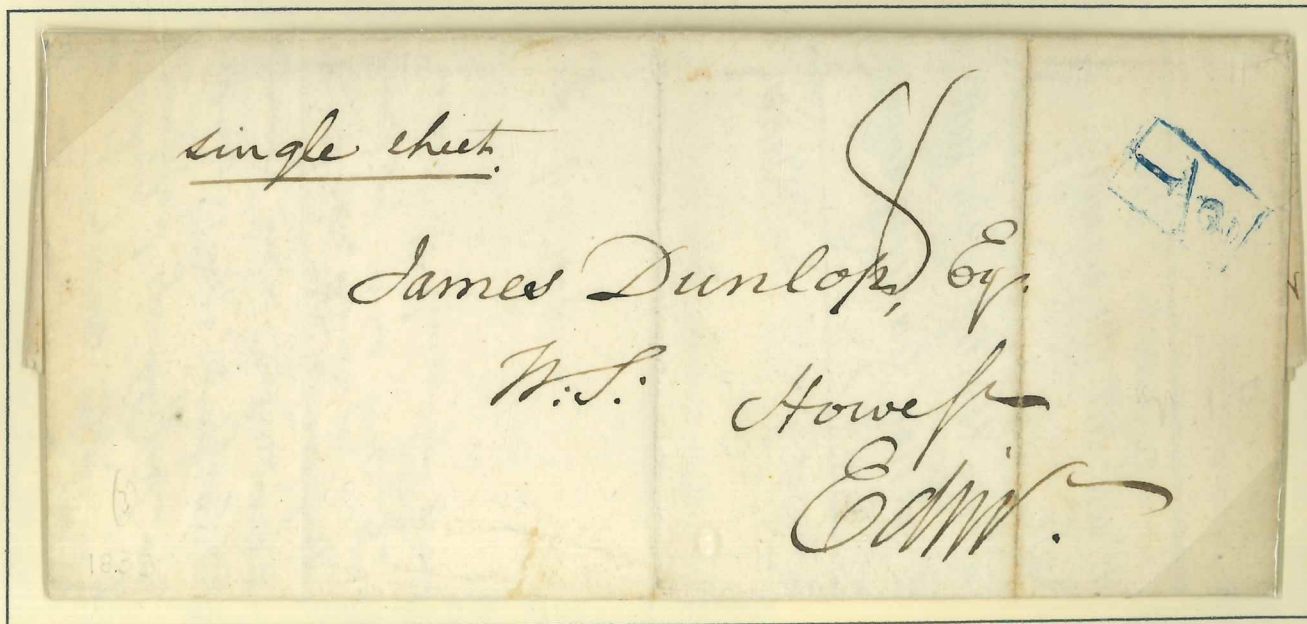 single sheet.
8
James Dunlop, Esq.
W.S.
Howe St
Edinr.
1/2